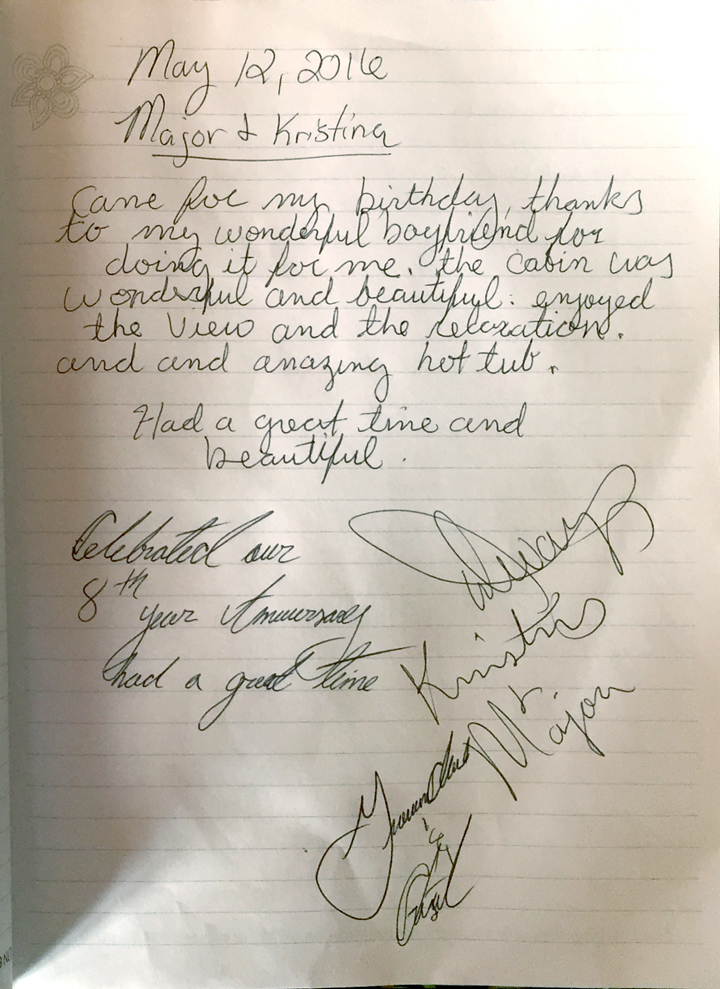 May 12, 2016
Major & Kristina
Came for my birthday, thanks
to my wonderful boyfriend for
doing it for me. the cabin was
wonderful and beautiful. enjoyed
the view and the relaxation.
and and amazing hot tub.
Had a great time and
beautiful.
Celebrated our
8th
year Anniversary
had a great time
Always
Kristina
&
Major
&